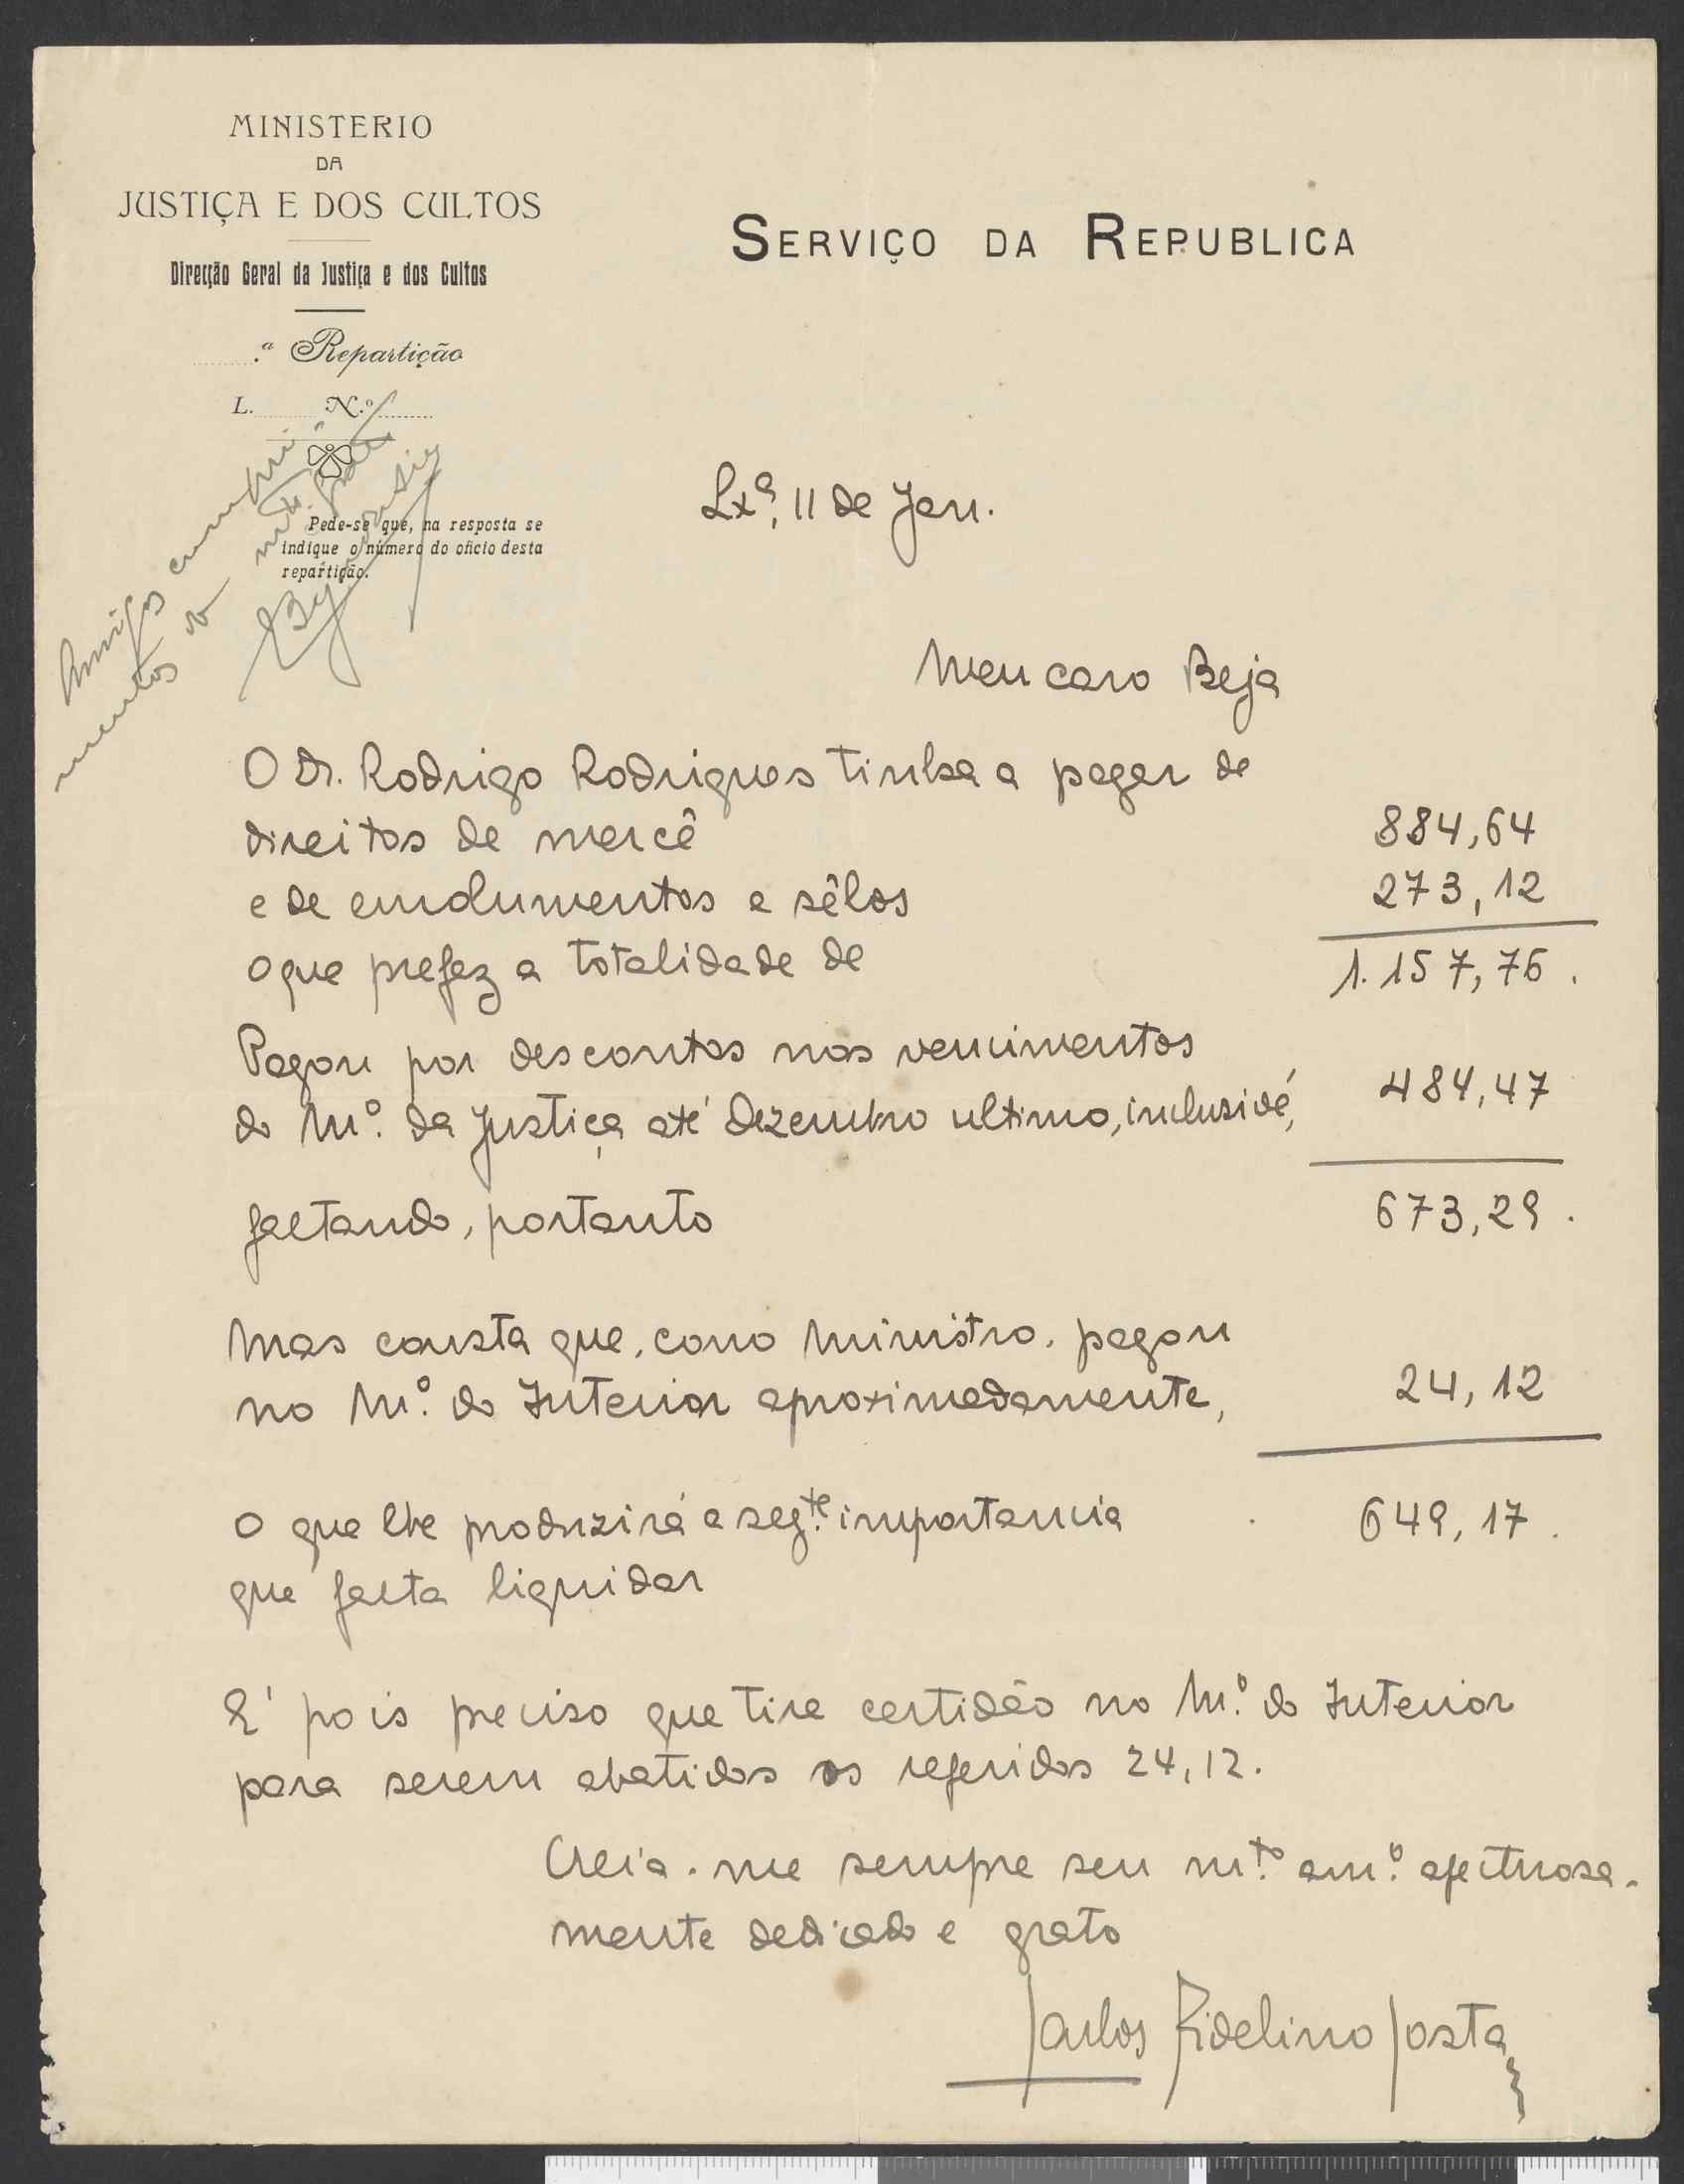 MINISTERIO
DA
JUSTIÇA E DOS CULTOS
Direcção Geral da Justiça e dos Cultos
.ª Repartição
L. N.º
Pede-se que, na resposta se
indique o número do oficio desta
repartição.
SERVIÇO DA REPUBLICA
Amigos cumpri-
mentos do mto. grato
Lxª, 11 de Jan.
Meu caro Beja
O Dr. Rodrigo Rodrigues tinha a pagar de
direitos de mercê 884,64
e de emolumentos e sêlos 273,12
o que prefez a totalidade de 1.157,76.
Pagou por descontos nos vencimentos
do Mº. da Justiça até Dezembro ultimo, inclusivé, 484,47
faltando, portanto 673,29.
Mas consta que, como Ministro, pagou
no Mº. do Interior aproximadamente, 24,12
O que lhe produzirá a segte. importancia 649,17.
que falta liquidar
E' pois preciso que tire certidão no Mº. do Interior
para serem abatidos os referidos 24,12.
Creia-me sempre seu mto. amº. afectuosa-
mente dedicado e grato
Carlos Fidelino Costa